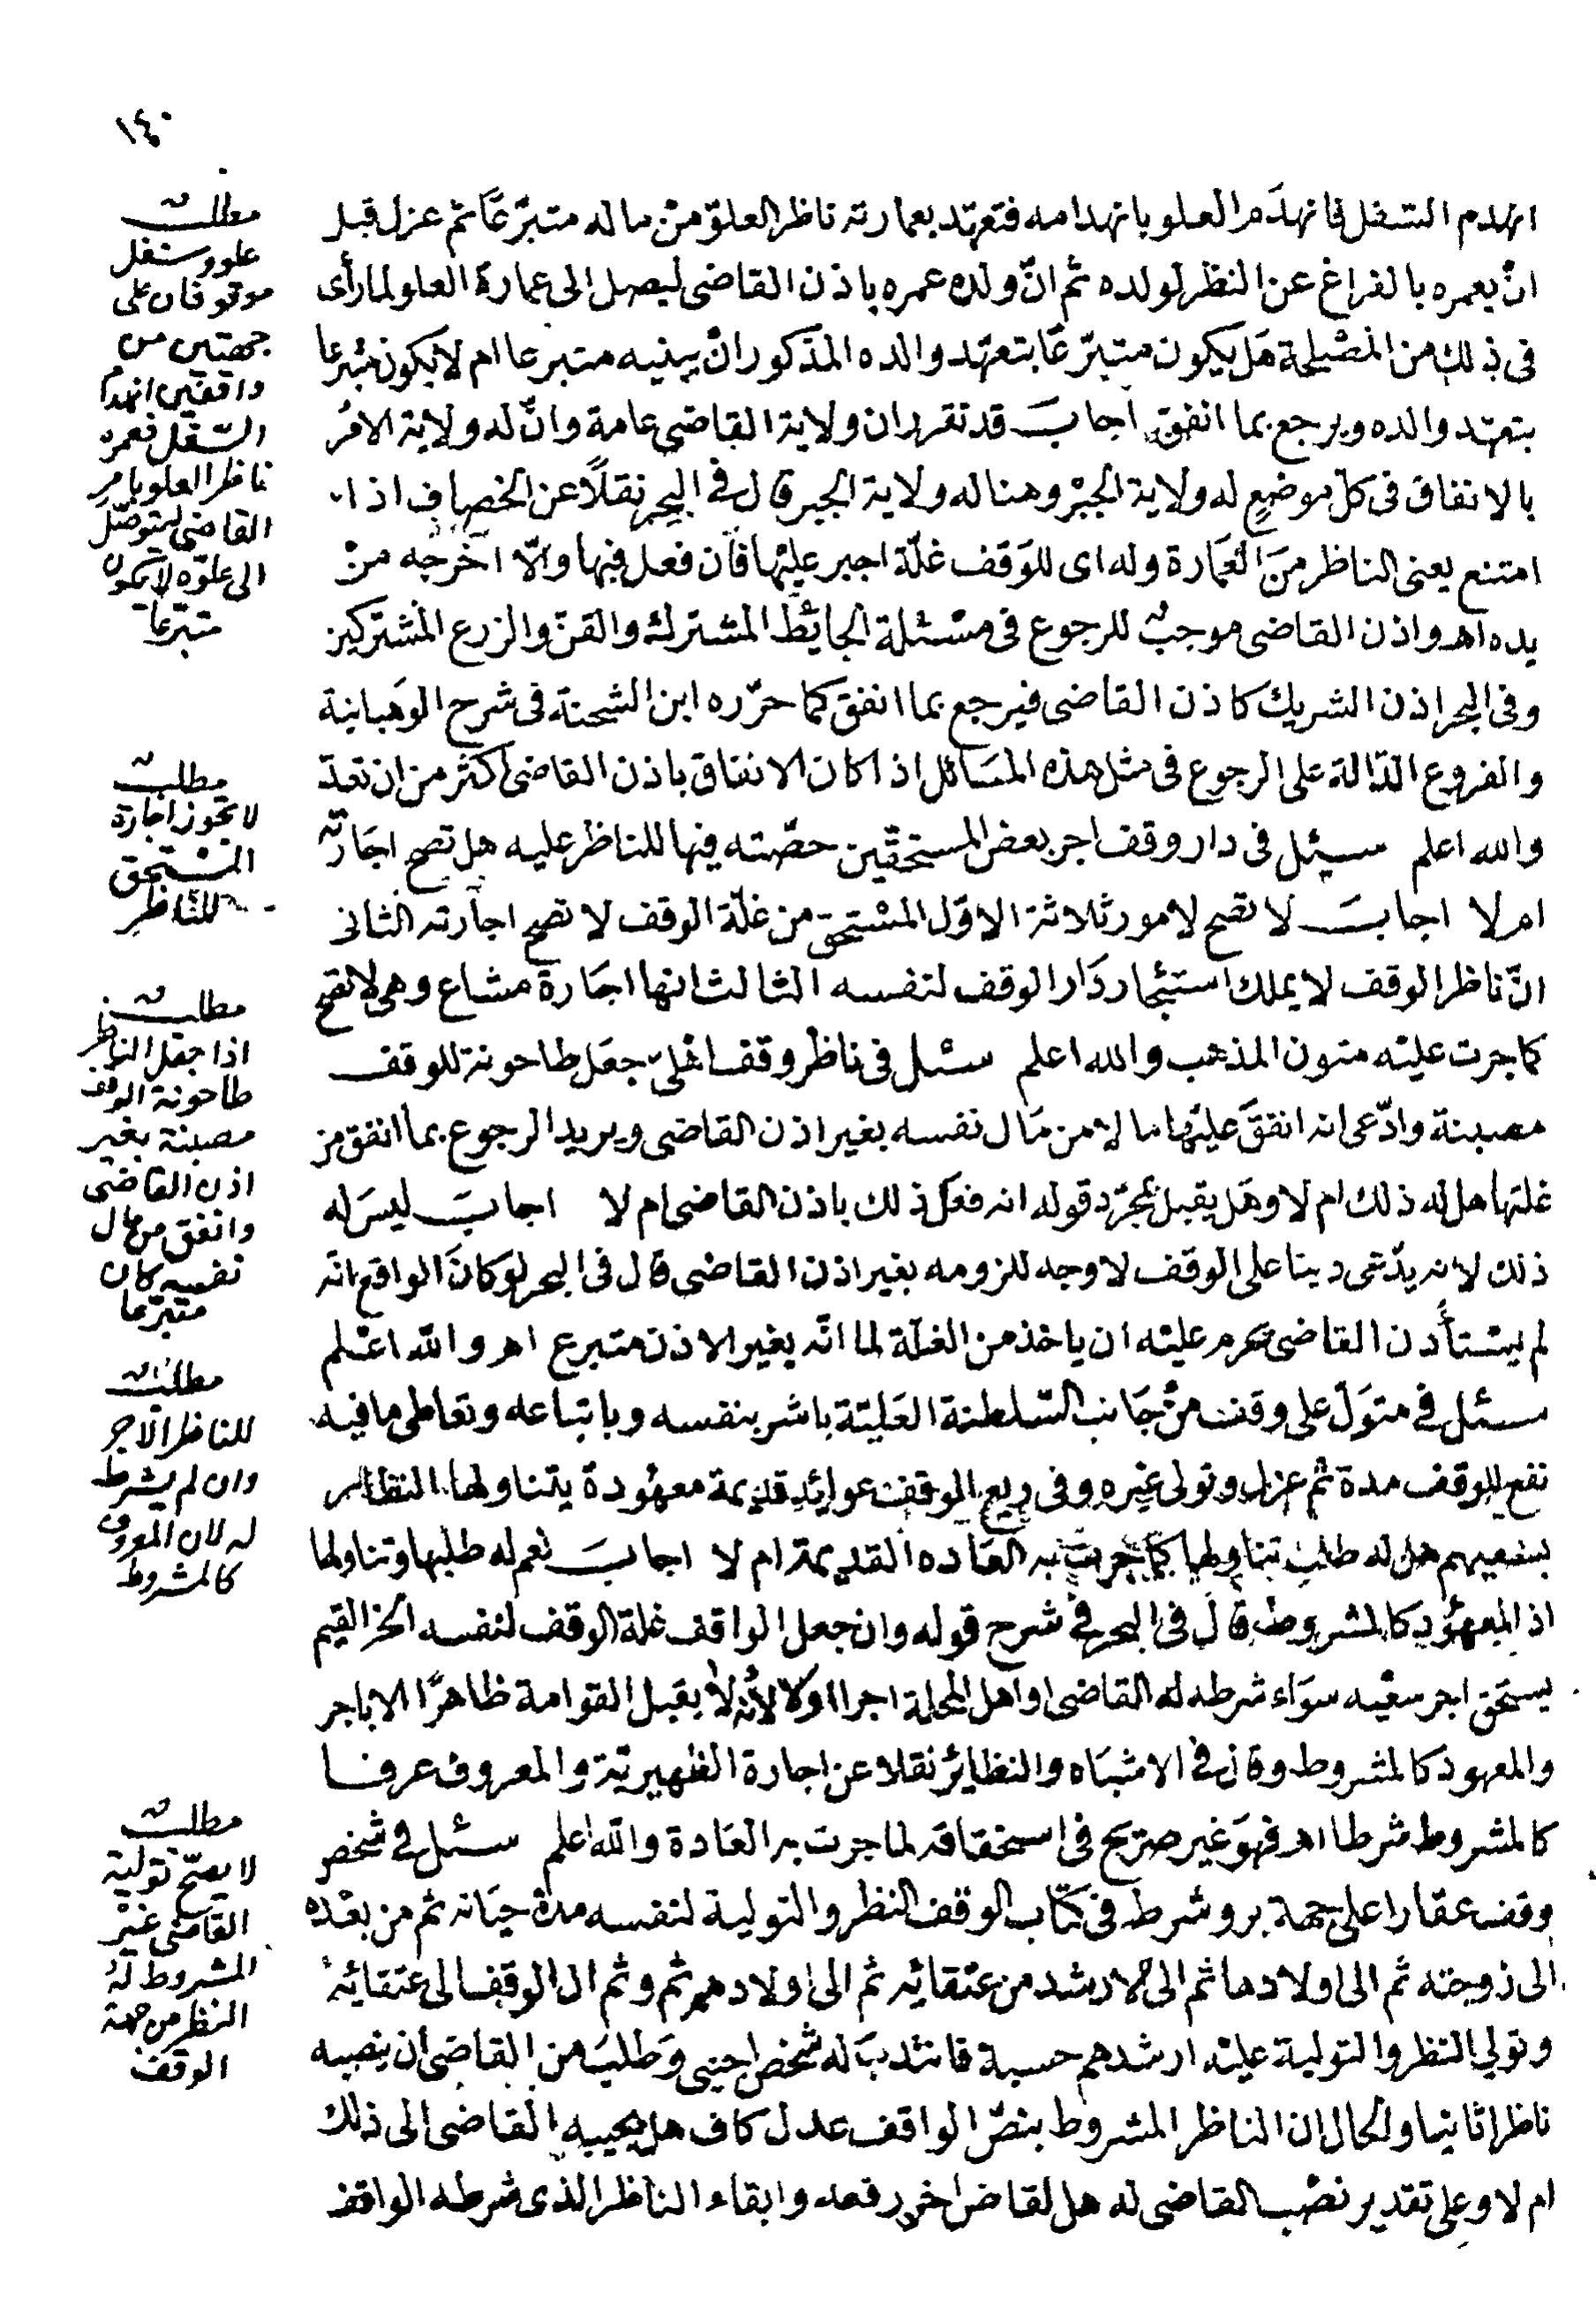 ١٤٠
انهدم السفل فانهدم العلو بانهدامه فتعهد بعمارته ناظر العلو من ماله متبرعا ثم عزل قبل
ان يعمره بالفراغ عن النظر لولده ثم ان ولده عمره باذن القاضى ليصل الى عمارة العلو لما رأى
فى ذلك من المصلحة هل يكون متبرعا بتعهد والده المذكور ان يبنيه متبرعا ام لا يكون متبرعا
بتعهد والده ويرجع بما انفق اجاب قد تقرر ان ولاية القاضى عامة وان له ولاية الامر
بالانفاق فى كل موضع له ولاية الجبر وهنا له ولاية الجبر قال فى البحر نقلا عن الخصاف اذا
امتنع يعنى الناظر من العمارة وله اى للوقف غلة اجبر عليها فان فعل فبها والا اخرجه من
يده اهـ واذن القاضى موجب للرجوع فى مسئلة الحائط المشترك والقن والزرع المشتركين
وفى البحر اذن الشريك كاذن القاضى فيرجع بما انفق كما حرره ابن الشحنة فى شرح الوهبانية
والفروع الدالة على الرجوع فى مثل هذه المسائل اذا كان الانفاق باذن القاضى اكثر من ان تعد
والله اعلم سئل فى دار وقف اجر بعض المستحقين حصته فيها للناظر عليه هل تصح اجارته
ام لا اجاب لا تصح لامور ثلاثة الاول المستحق من غلة الوقف لا تصح اجارته الثانى
ان ناظر الوقف لا يملك استئجار دار الوقف لنفسه الثالث انها اجارة مشاع وهى لا تصح
كما جرت عليه متون المذهب والله اعلم سئل فى ناظر وقف اهلى جعل طاحونة للوقف
مصبنة وادعى انه انفق عليها مالا من مال نفسه بغير اذن القاضى ويريد الرجوع بما انفق من
غلتها هل له ذلك ام لا وهل يقبل بمجرد قوله انه فعل ذلك باذن القاضى ام لا اجاب ليس له
ذلك لانه يدعى دينا على الوقف لا وجه للزومه بغير اذن القاضى قال فى البحر لو كان الواقع انه
لم يستأذن القاضى يحرم عليه ان ياخذ من الغلة لما انه بغير الاذن متبرع اهـ والله اعلم
سئل فى متول على وقف من جانب السلطنة العلية باشر بنفسه وباتباعه وتعاطى ما فيه
نفع للوقف مدة ثم عزل وتولى غيره وفى ريع الوقف عوائد قديمة معهودة يتناولها النظار
بسعيهم هل له طلب تناولها كما جرت به العاده القديمة ام لا اجاب نعم له طلبها وتناولها
اذ المعهود كالمشروط قال فى البحر فى شرح قوله وان جعل الواقف غلة الوقف لنفسه الخ القيم
يستحق اجر سعيه سواء شرطه له القاضى او اهل المحلة اجرا اولا لأنه لا يقبل القوامة ظاهرا الا باجر
والمعهود كالمشروط وقال فى الاشباه والنظائر نقلا عن اجارة الظهيرية والمعروف عرفا
كالمشروط شرطا اهـ فهو غير صريح فى استحقاقه لما جرت به العادة والله اعلم سئل فى شخص
وقف عقارا على جهة بر وشرط فى كتاب الوقف النظر والتولية لنفسه مدة حياته ثم من بعده
الى زوجته ثم الى اولادها ثم الى الارشد من عتقائه ثم الى اولادهم ثم وثم ال الوقف الى عتقائه
وتولى النظر والتولية عليه ارشدهم حسبة فانتدب له شخص اجنبى وطلب من القاضى ان ينصبه
ناظرا ثانيا والحال ان الناظر المشروط بنص الواقف عدل كاف هل يجيبه القاضى الى ذلك
ام لا وعلى تقدير نصب القاضى له هل لقاض اخر رفعه وابقاء الناظر الذى شرطه الواقف
مطلب
علو وسفل
موقوفان على
جهتين من
واقفين انهدم
السفل فعمره
ناظر العلو بامر
القاضى ليتوصل
الى علوه لا يكون
متبرعا
مطلب
لا تجوز اجارة
المستحق
للناظر
مطلب
اذا جعل الناظر
طاحونة الوقف
مصبنة بغير
اذن القاضى
وانفق من مال
نفسه كان
متبرعا
مطلب
للناظر الاجر
وان لم يشرط
له لان المعروف
كالمشروط
مطلب
لا يصح تولية
القاضى غير
المشروط له
النظر من جهة
الوقف